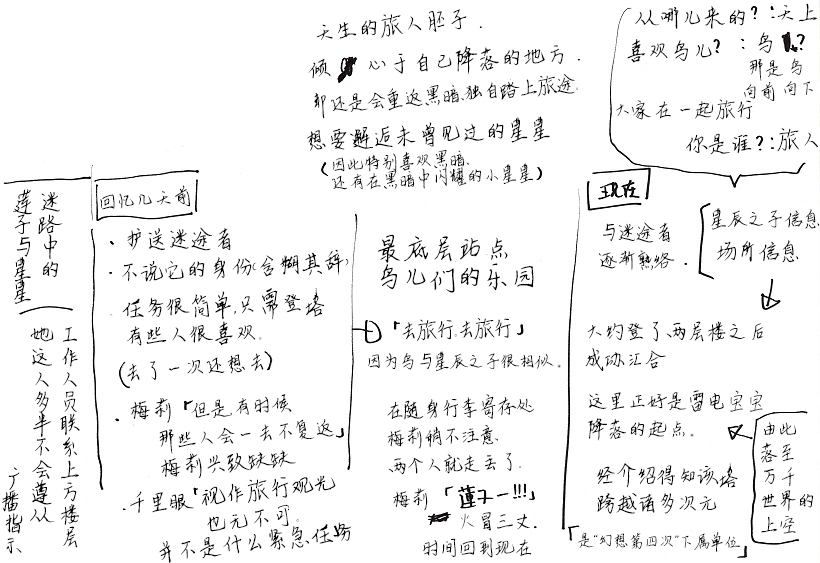 天生的旅人胚子.
倾心于自己降落的地方.
却还是会重返黑暗.独自踏上旅途.
想要邂逅未曾见过的星星
(因此特别喜欢黑暗.
还有在黑暗中闪耀的小星星)
从哪儿来的?:天上
喜欢鸟儿? : 鸟?
那是鸟
向前 向下
大家在一起旅行
你是谁?:旅人
迷路中的
莲子与星星
工作人员联系上方楼层
她这人多半不会遵从
广播指示
回忆几天前
·护送迷途者
·不说它的身份(含糊其辞)
·任务很简单,只需登塔
有些人很喜欢.
(去了一次还想去)
·梅莉「但是有时候
那些人会一去不复返」
梅莉兴致缺缺
·千里眼「视作旅行观光
也无不可.
并不是什么紧急任务
最底层站点
鸟儿们的乐园
「去旅行.去旅行」
因为鸟与星辰之子很相似.
在随身行李寄存处
梅莉稍不注意.
两个人就走丢了.
梅莉「蓮子一!!!」
火冒三丈.
时间回到现在
现在
与迷途者
逐渐熟络.
星辰之子信息
场所信息
大约登了两层楼之后
成功汇合
这里正好是雷电宝宝
降落的起点.
由此
落至
万千
世界的
上空
经介绍得知该塔
跨越诸多次元
「是“幻想第四次”下属单位」